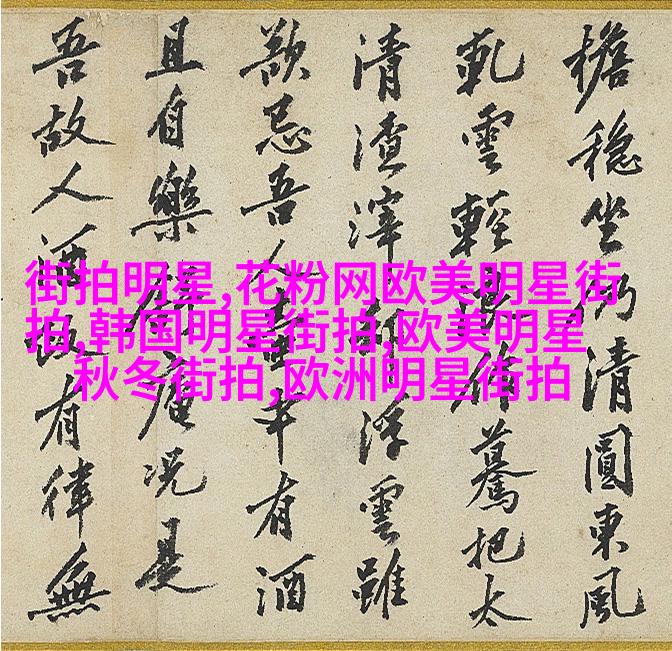 街拍明星,花粉网欧美明星街
拍,韩国明星街拍,欧美明星
秋冬街拍,欧洲明星街拍
檐穩坐乃清圓東風
軋雲輕驀把太
清渣滓浮雲雖
忌吾人中有酒
且自樂況是
吾故人酒有律無